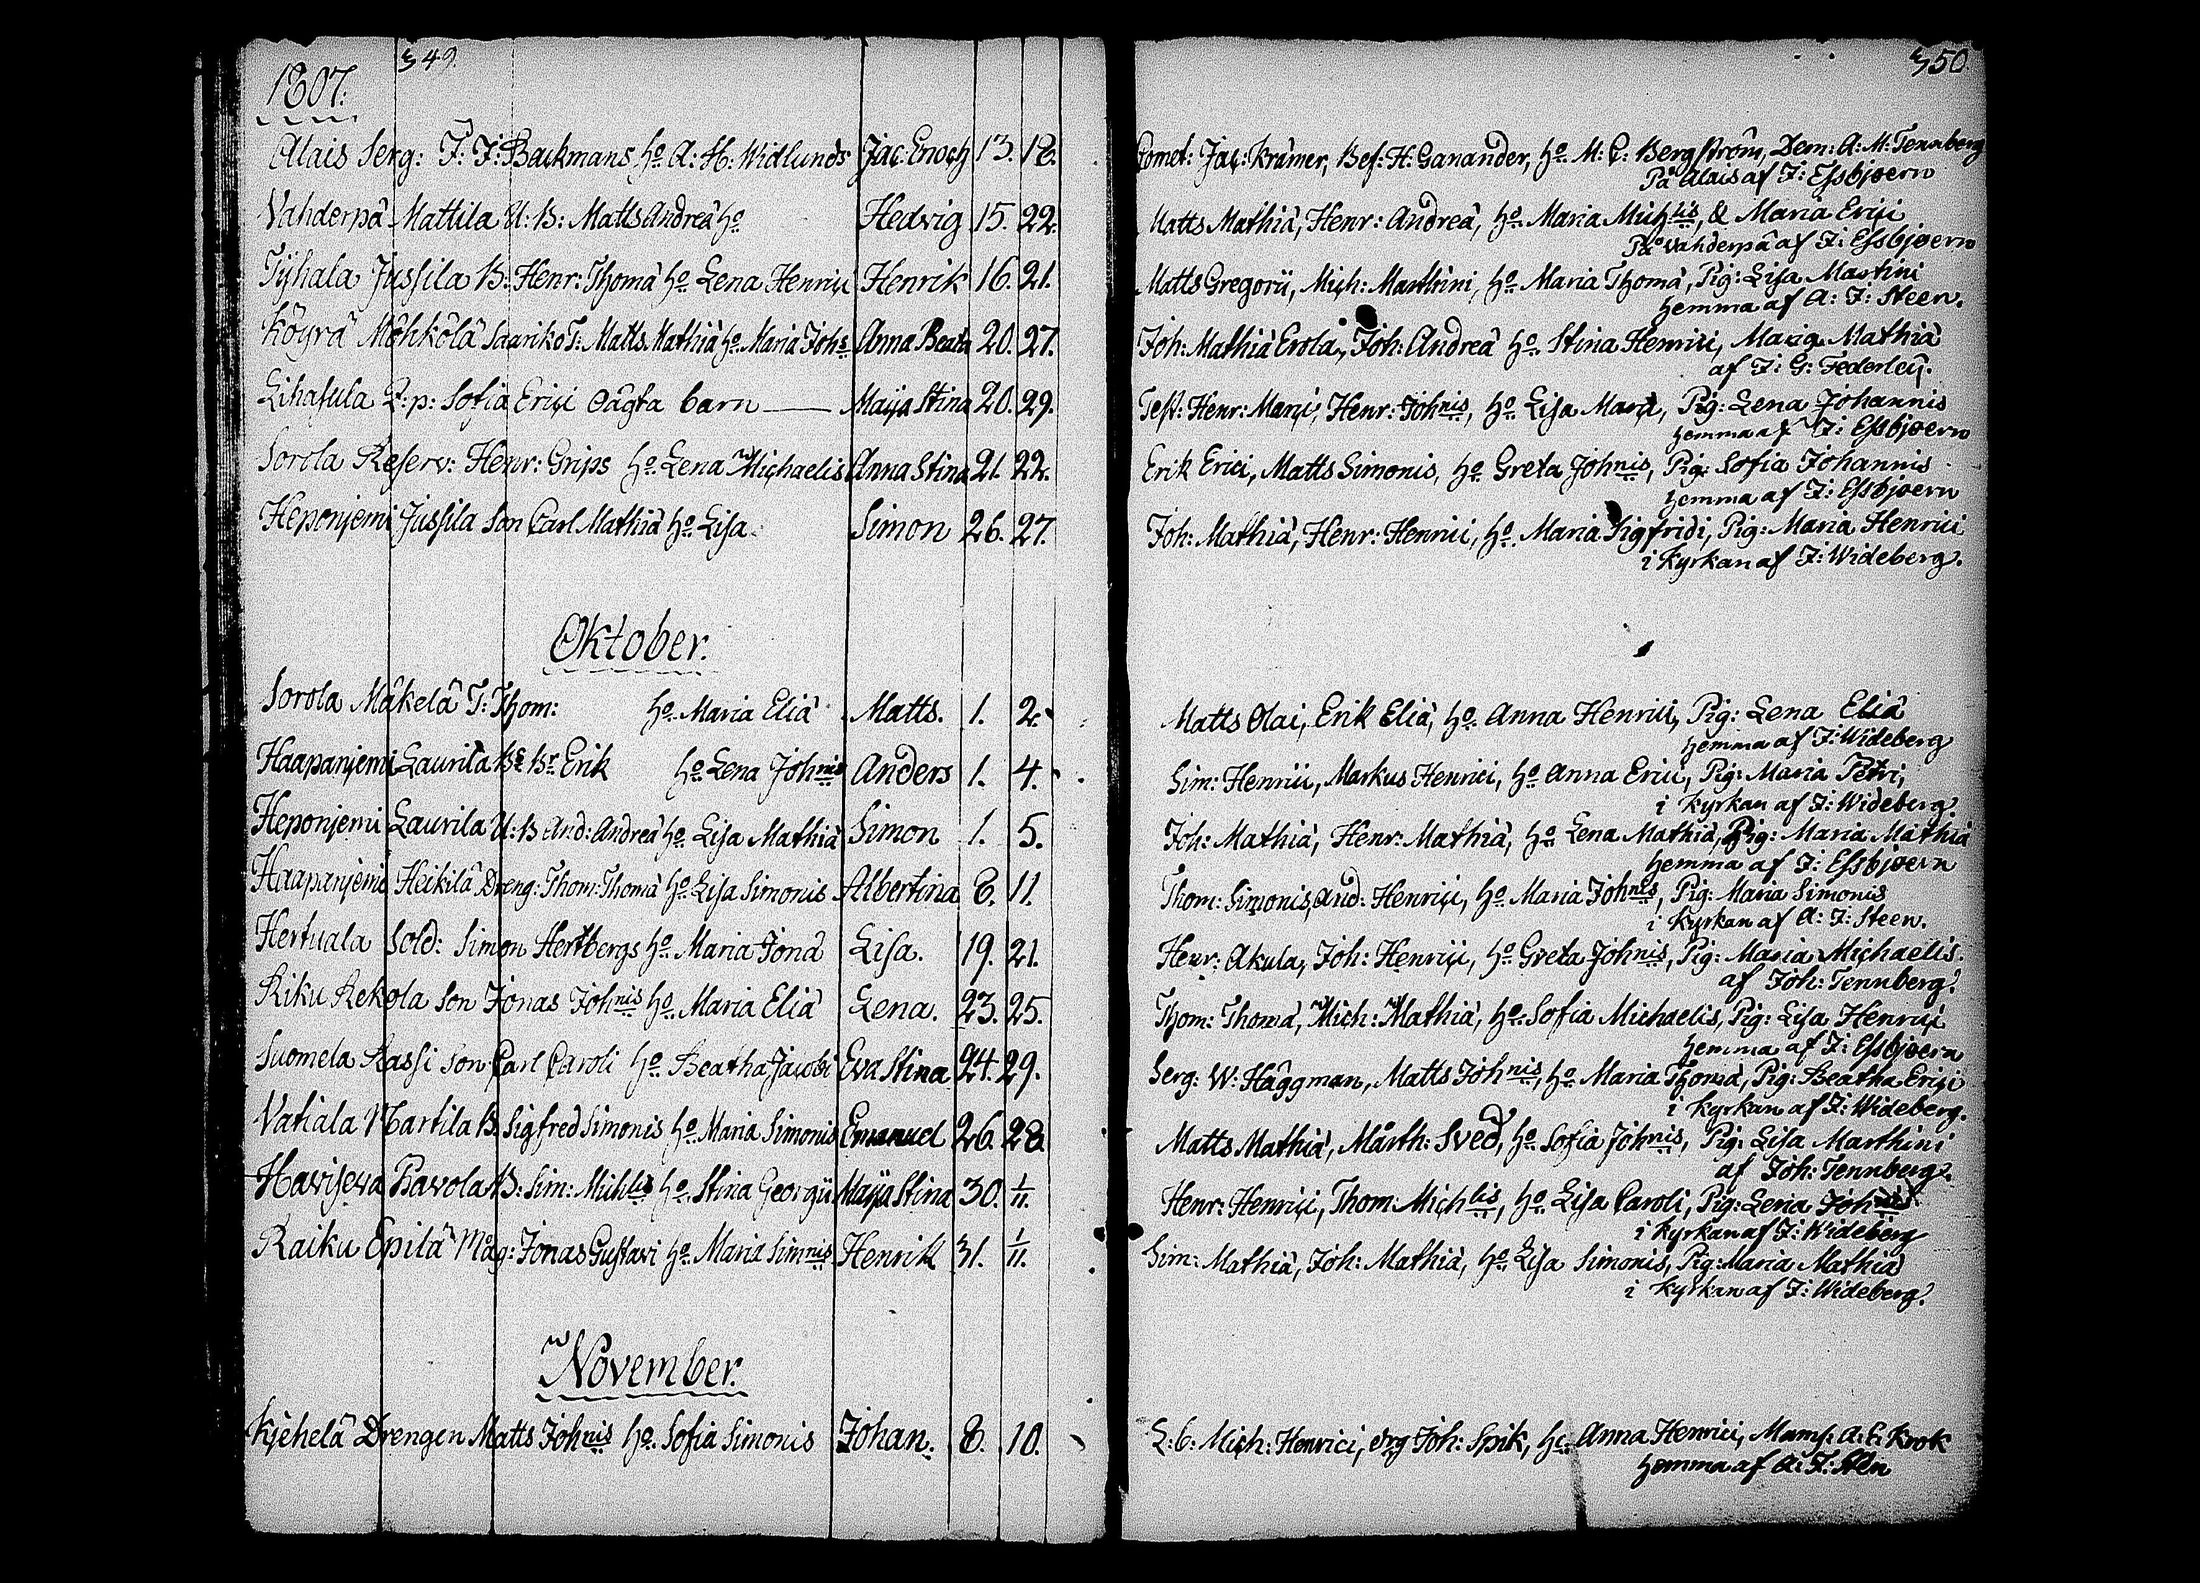 349.
1807.
Alais Serg: J: J: Backmans ho A: H: Widlunds Jac: Enoch 13. 18.
Vahderpä Mattila U: B: Matts Andreä ho Hedvig 15. 22.
Tyhala Jussila B: Henr: Thomä ho Lena Henrici Henrik 16. 21.
Köyrä Möhkölä Saariko T: Matts Mathiä ho Maria Johs Anna Beata 20. 27.
Lihasula Q: p: Sofia Erici Oägta barn — Maija Stina 20. 29.
Sorola Reserv: Henr: Grips ho Lena Michaelis Anna Stina 21. 22.
Heponjemi Jussila Son Carl Mathiä ho Lisa. Simon 26. 27.
Oktober.
Sorola Mäkelä T: Thom: ho Maria Eliä Matts. 1. 2.
Haapanjemi Laurila Bs Br Erik ho Lena Johnis Anders 1. 4.
Heponjemi Laurila U: B And: Andreä ho Lisa Mathiä Simon 1. 5.
Haapanjemi Heikilä Dreng: Thom: Thomä ho Lisa Simonis Albertina 8. 11.
Hertuala Sold: Simon Hertbergs ho Maria Jonä Lisa. 19. 21.
Riku Rekola Son Jonas Johnis ho Maria Eliä Lena. 23. 25.
Suomela Rassi Son Carl Caroli ho Beatha Jacobi Eva Stina 24. 29.
Vatiala Martila B. Sigfred Simonis ho Maria Simonis Emanuel 26. 28.
Haviseva Pavola B: Sim: Michlis ho Stina Georgii Maija Stina 30. 1/11.
Raiku Epilä Måg: Jonas Gustavi ho Maria Simnis Henrik 31. 1/11.
November.
Kjehelä Drengen Matts Johnis ho Sofia Simonis Johan. 8. 10.
350.
Comet: Jac: Krämer, Bef: H: Ganander, ho M: C: Bergström, Dem: A: M: Tennberg
På Alais af J: Essbjoern
Matts Mathiä, Henr: Andreä, ho Maria Michlis, & Maria Erici
På Vahderpä af J: Essbjoern
Matts Gregorii, Mich: Marthini, ho Maria Thomä, Pig: Lisa Martini
hemma af A: J: Steen.
Joh: Mathiä Erola, Joh: Andreä ho Stina Henrici, Maria Mathiä
af J: G: Federley.
Test: Henr: Marci, Henr: Johnis, ho Lisa Marci, Pig: Lena Johannis
hemma af J: Essbjoern
Erik Erici, Matts Simonis, ho Greta Johnis, Pig: Sofia Johannis
hemma af J: Essbjoern
Joh: Mathiä, Henr: Henrici, ho Maria Sigfridi, Pig: Maria Henrici
i Kyrkan af J: Wideberg.
Matts Olai, Erik Eliä, ho Anna Henrici, Pig: Lena Eliä
hemma af J: Wideberg
Sim: Henrici, Markus Henrici, ho Anna Erici, Pig: Maria Petri,
i Kyrkan af J: Wideberg.
Joh: Mathiä, Henr: Mathiä, ho Lena Mathiä, Pig: Maria Mathiä
hemma af J: Essbjoern
Thom: Simonis, And: Henrici, ho Maria Johnis, Pig: Maria Simonis
i Kyrkan af A: J: Steen.
Henr: Akula, Joh: Henrici, ho Greta Johnis, Pig: Maria Michaelis.
af Joh: Tennberg.
Thom: Thomä, Mich: Mathiä, ho Sofia Michaelis, Pig: Lisa Henrici
hemma af J: Essbjoern
Serg: W: Häggman, Matts Johnis, ho Maria Thomä, Pig: Beatha Erici
i Kyrkan af J: Wideberg.
Matts Mathiä, Mårth: Sved, ho Sofia Johnis, Pig: Lisa Marthini
af Joh: Tennberg.
Henr: Henrici, Thom: Michlis, ho Lisa Caroli, Pig: Lena Johnis
i Kyrkan af J: Wideberg
Sim: Mathiä, Joh: Mathiä, ho Lisa Simonis, Pig: Maria Mathiä
i Kyrkan af J: Wideberg.
L: b. Mich: Henrici, Joh: Spik, ho Anna Henrici, Mams: A: C: Krok
hemma af A: J: Sten